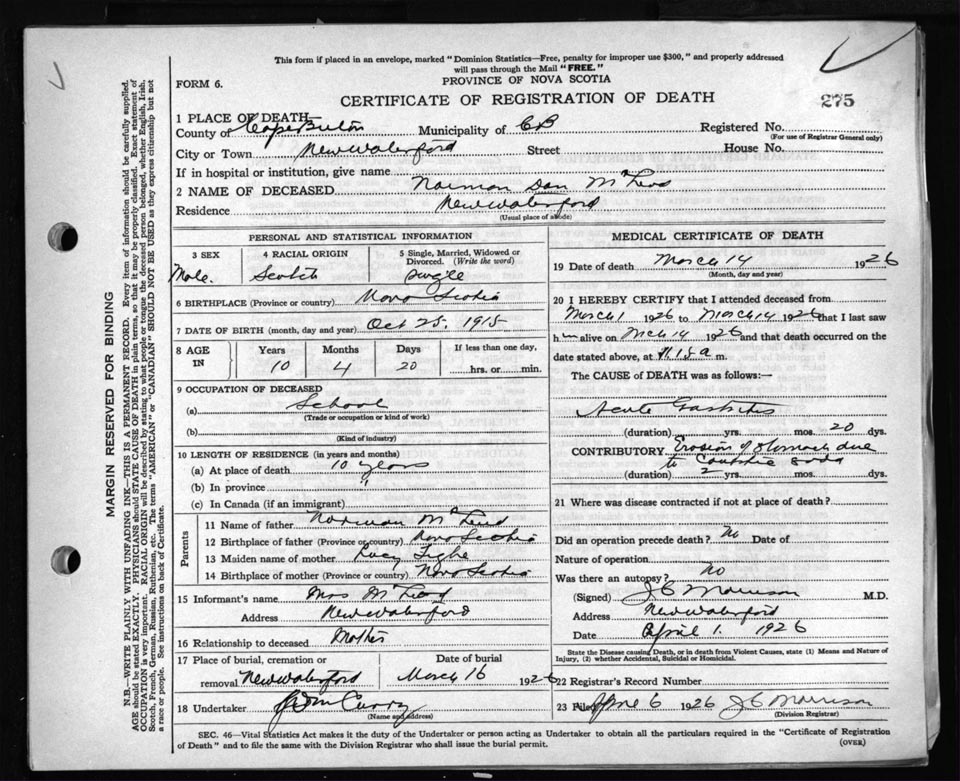 This form if placed in an envelope, marked "Dominion Statistics—Free, penalty for improper use $300," and properly addressed
will pass through the Mail "FREE."
FORM 6.
PROVINCE OF NOVA SCOTIA
CERTIFICATE OF REGISTRATION OF DEATH
275
1 PLACE OF DEATH
County of Cape Breton Municipality of CB Registered No.
(For use of Registrar General only)
City or Town New Waterford Street House No.
If in hospital or institution, give name
2 NAME OF DECEASED Norman Dan McLeod
Residence New Waterford
(Usual place of abode)
PERSONAL AND STATISTICAL INFORMATION
3 SEX 4 RACIAL ORIGIN 5 Single, Married, Widowed or Divorced. (Write the word)
Male. Scotch Single
6 BIRTHPLACE (Province or country) Nova Scotia
7 DATE OF BIRTH (month, day and year) Oct 25. 1915
8 AGE IN Years Months Days If less than one day,
10 4 20 hrs. or min.
9 OCCUPATION OF DECEASED
(a) School
(Trade or occupation or kind of work)
(b)
(Kind of industry)
10 LENGTH OF RESIDENCE (in years and months)
(a) At place of death 10 years
(b) In province "
(c) In Canada (if an immigrant)
Parents
11 Name of father Norman McLeod
12 Birthplace of father (Province or country) Nova Scotia
13 Maiden name of mother Lucy Tighe
14 Birthplace of mother (Province or country) Nova Scotia
15 Informant's name Mrs McLeod
Address New Waterford
16 Relationship to deceased Mother
17 Place of burial, cremation or removal New Waterford Date of burial March 16 1926
18 Undertaker Curry
(Name and address)
MEDICAL CERTIFICATE OF DEATH
19 Date of death March 14 1926
(Month, day and year)
20 I HEREBY CERTIFY that I attended deceased from
March 1 1926 to March 14 1926 that I last saw
him alive on Mch 14 1926 and that death occurred on the
date stated above, at 11.15 a m.
The CAUSE of DEATH was as follows:—
Acute Gastritis
(duration) yrs. mos. 20 dys.
CONTRIBUTORY Erosion of Stomach due
to Caustic soda
(duration) 2 yrs. mos. dys.
21 Where was disease contracted if not at place of death?
Did an operation precede death? No Date of
Nature of operation
Was there an autopsy? No
(Signed) J C Morrison M.D.
Address New Waterford
Date April 1. 1926
State the Disease causing Death, or in death from Violent Causes, state (1) Means and Nature of
Injury, (2) whether Accidental, Suicidal or Homicidal.
22 Registrar's Record Number
23 Filed April 6 1926 J C Morrison
(Division Registrar)
SEC. 46—Vital Statistics Act makes it the duty of the Undertaker or person acting as Undertaker to obtain all the particulars required in the "Certificate of Registration
of Death" and to file the same with the Division Registrar who shall issue the burial permit.
(OVER)
MARGIN RESERVED FOR BINDING
N.B.—WRITE PLAINLY WITH UNFADING INK—THIS IS A PERMANENT RECORD. Every item of information should be carefully supplied.
AGE should be stated EXACTLY. PHYSICIANS should STATE CAUSE OF DEATH in plain terms, so that it may be properly classified. Exact statement of
OCCUPATION is very important. RACIAL ORIGIN will be described by stating to what people or race the deceased person belonged, whether English, Irish,
Scotch, French, German, Russian, Ruthenian, etc. The terms "AMERICAN" or "CANADIAN" SHOULD NOT BE USED as they express citizenship but not
a race or people. See instructions on back of Certificate.